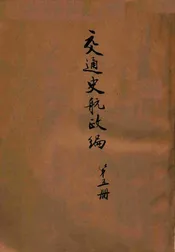 交通史航政編
第五册